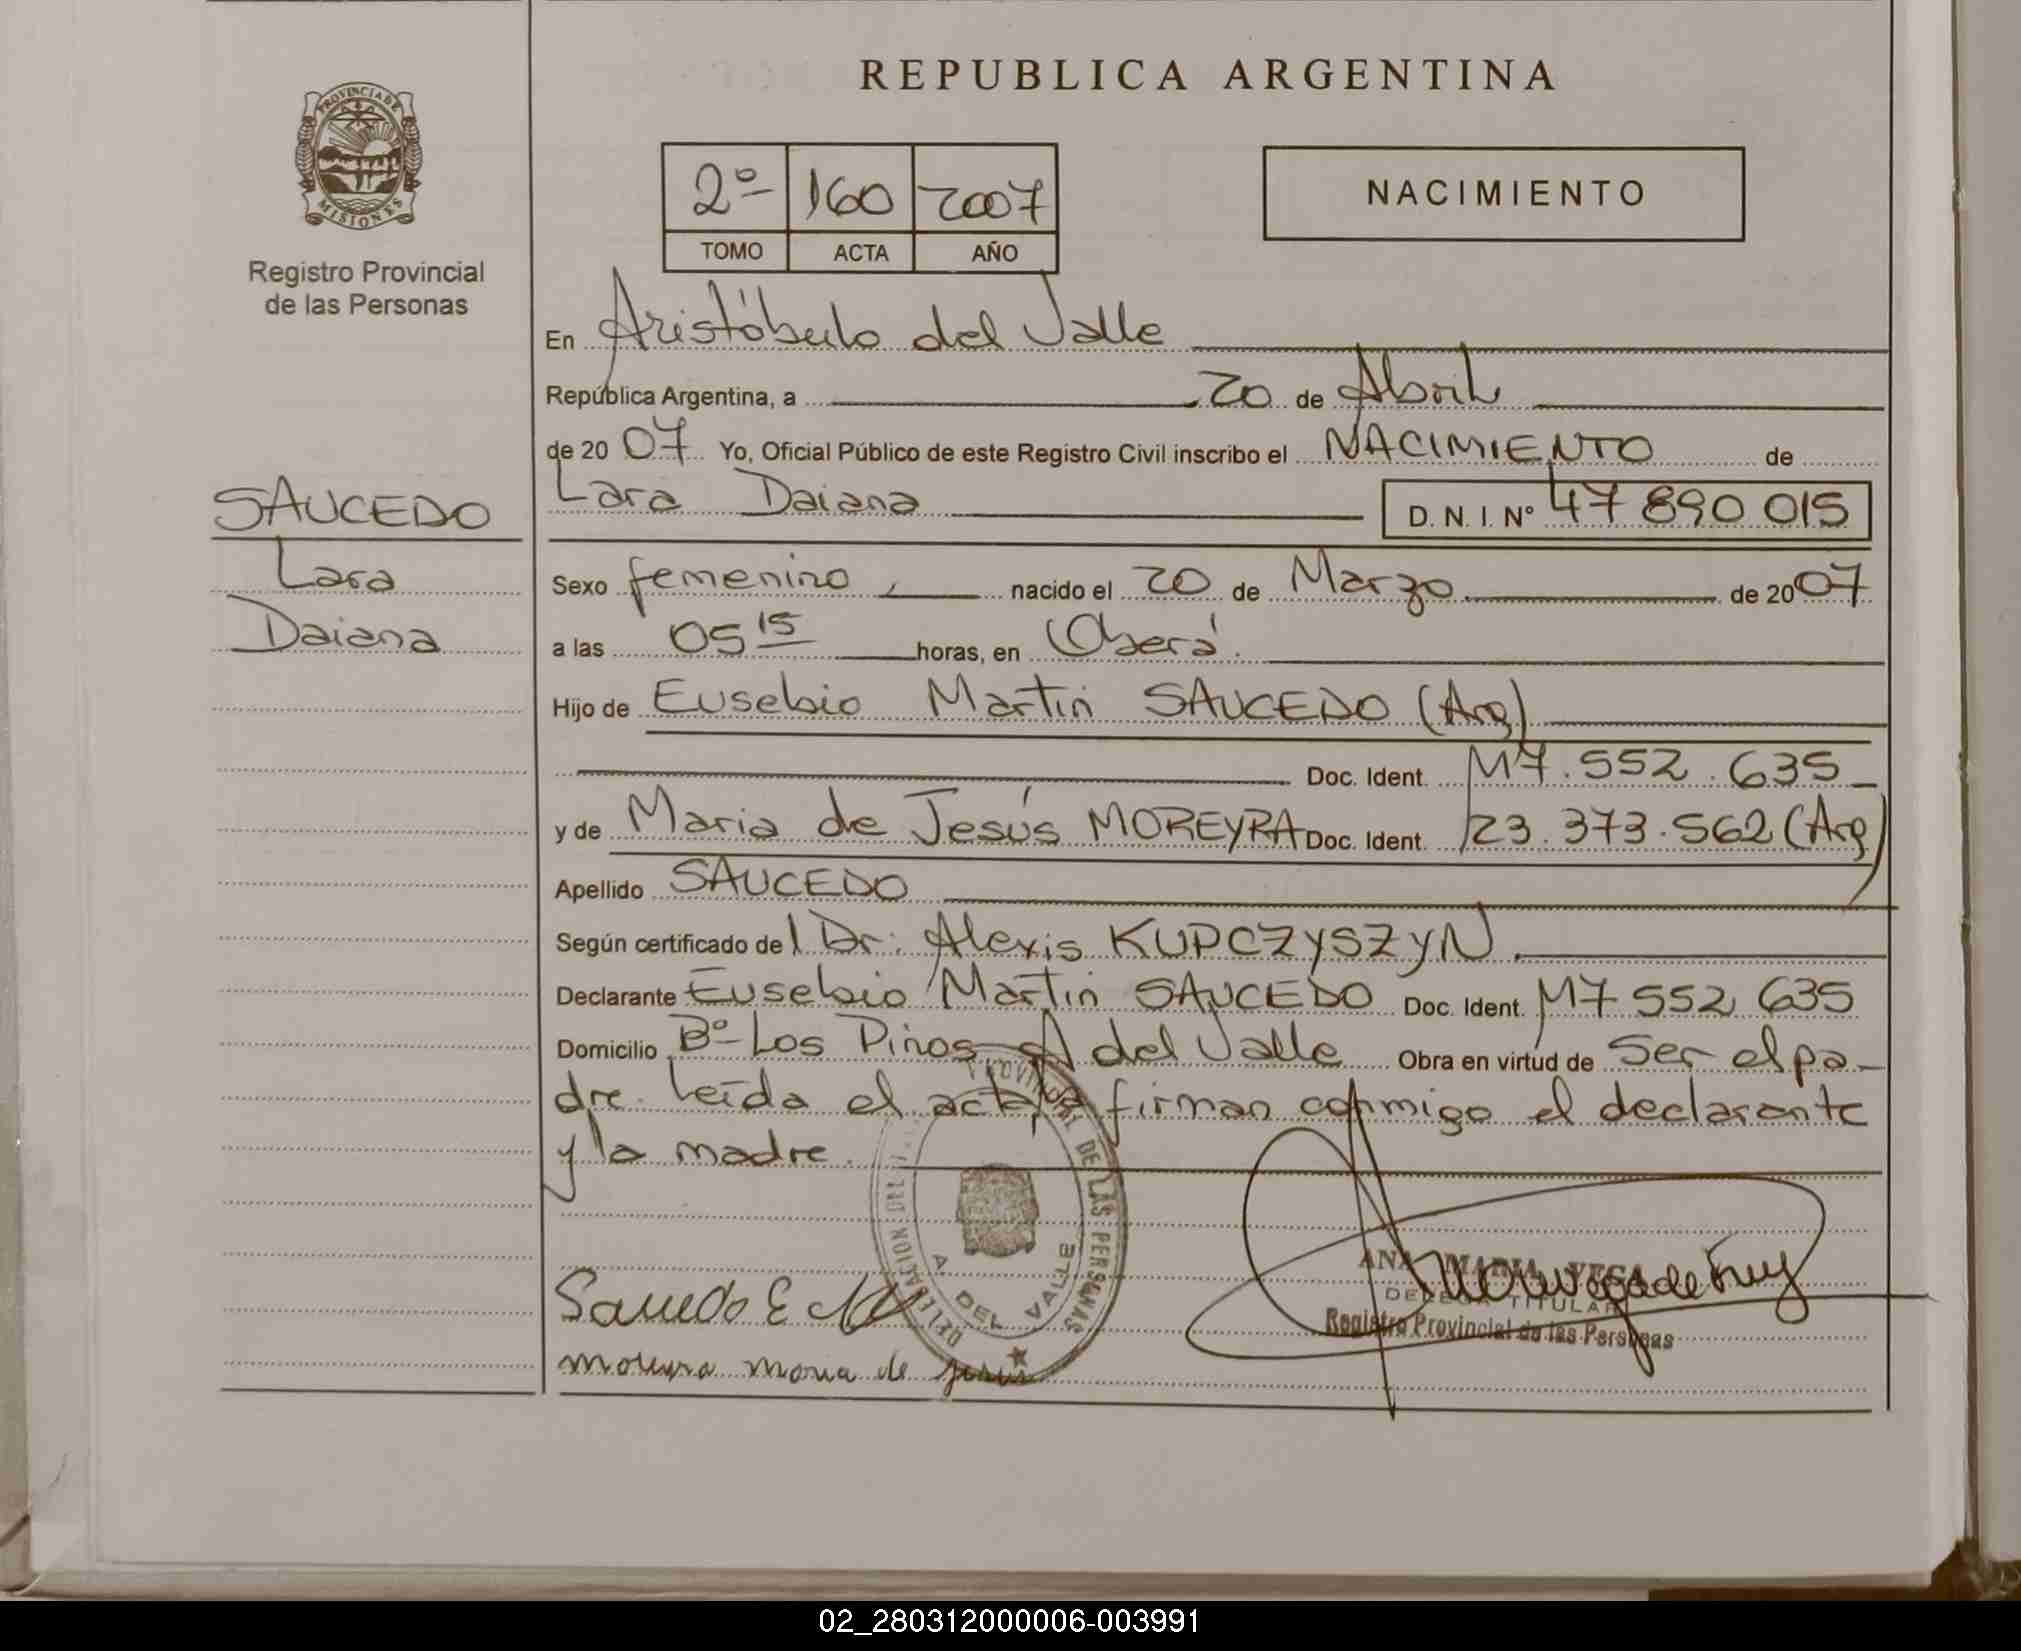 REPUBLICA ARGENTINA
PROVINCIA DE
MISIONES
Registro Provincial
de las Personas
2º 160 2007
TOMO ACTA AÑO
NACIMIENTO
En Aristóbulo del Valle
República Argentina, a 20 de Abril
de 2007 Yo, Oficial Público de este Registro Civil inscribo el NACIMIENTO de
SAUCEDO
Lara
Daiana
Lara Daiana D. N. I. Nº 47 890 015
Sexo femenino, nacido el 20 de Marzo de 2007
a las 05 15 horas, en Oberá.
Hijo de Eusebio Martin SAUCEDO (Arg)
Doc. Ident. M7.552.635
y de Maria de Jesús MOREYRA Doc. Ident. 23.373.562 (Arg)
Apellido SAUCEDO
Según certificado del Dr. Alexis KUPCZYSZYN
Declarante Eusebio Martin SAUCEDO Doc. Ident. M7 552 635
Domicilio Bº Los Pinos A del Valle Obra en virtud de Ser el pa-
dre. Leída el acta, firman conmigo el declarante
y la madre.
PROVINCIAL DE LAS PERSONAS
DELEGACION DEL
A. DEL VALLE
ANA MARIA VEGA
TITULAR
Registro Provincial de las Personas
Saucedo E
Moreyra Maria de Jesus
02_280312000006-003991